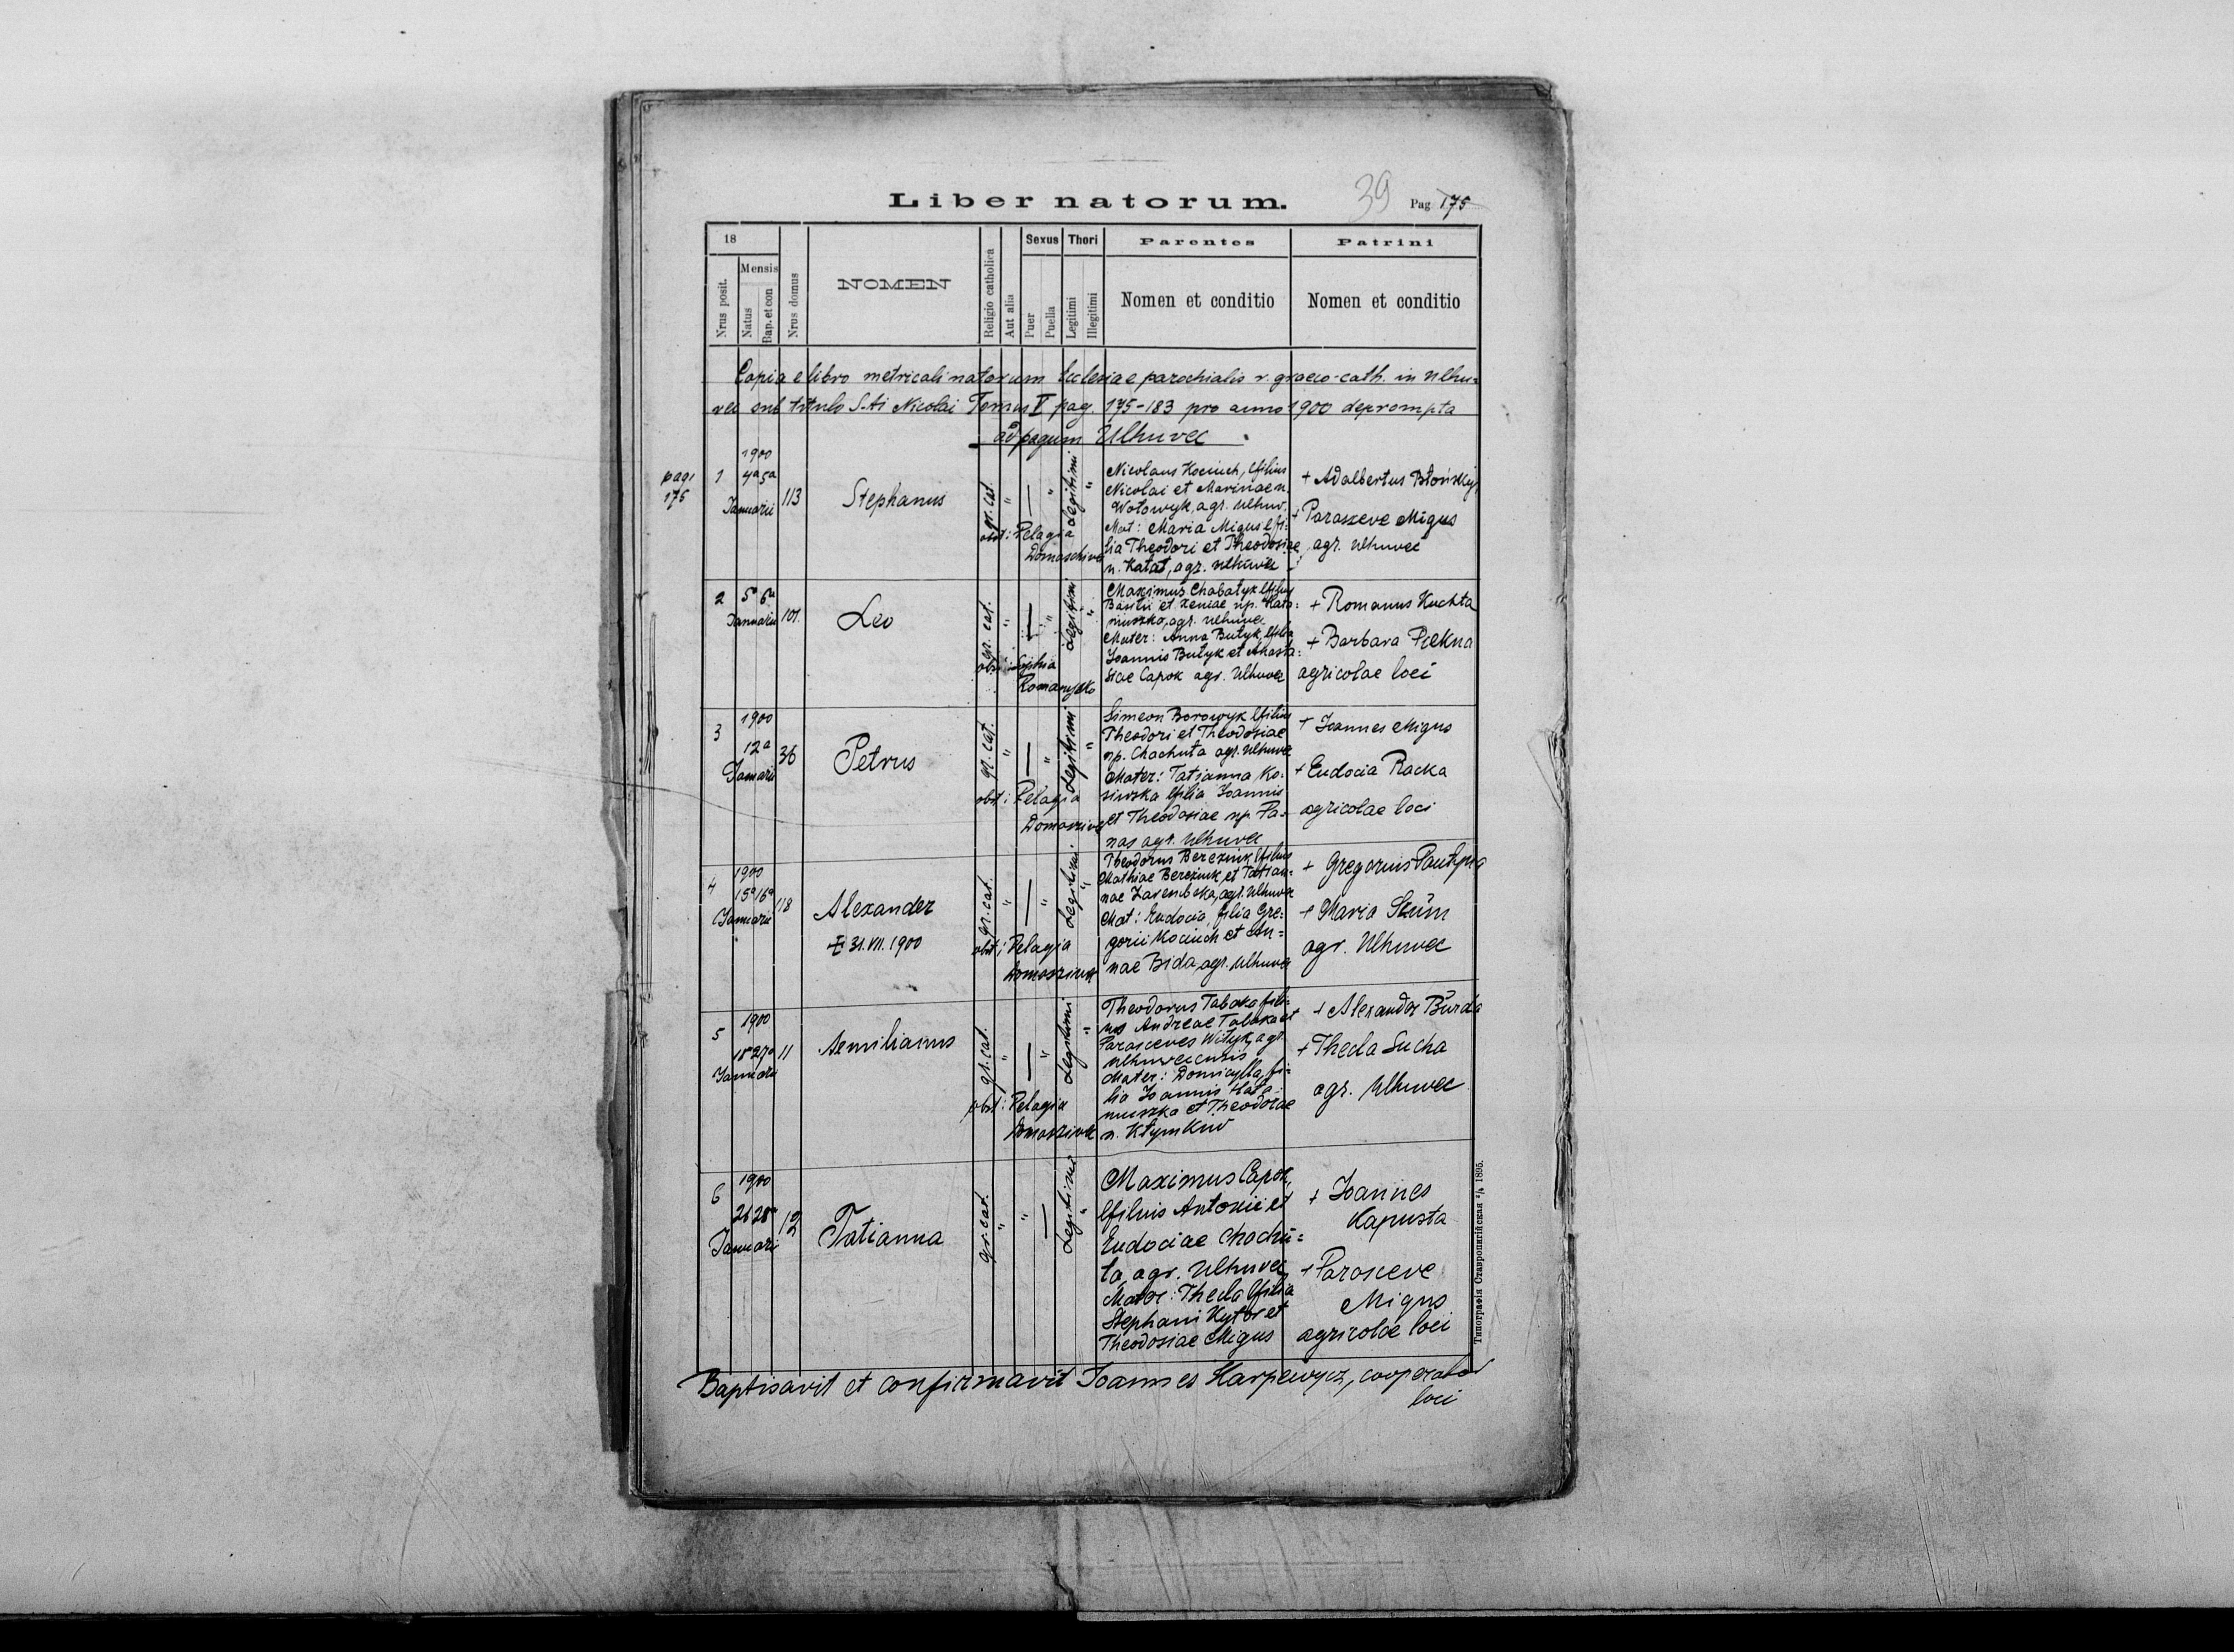 Liber natorum.
39 Pag 175
18
Mensis
Nrus posit.
Natus
Bap. et con
Nrus domus
NOMEN
Religio catholica
Aut alia
Sexus
Puer
Puella
Thori
Legitimi
Illegitimi
Parentes
Nomen et conditio
Patrini
Nomen et conditio
Copia e libro metricali natorum Ecclesiae parochialis r. graeco-cath. in Ulhu=
vec sub titulo S-ti Nicolai Tomus V pag. 175-183 pro anno 1900 deprompta
ad pagum Ulhuvec
pag.
175
1
1900
4a 5a
Januarii
113
Stephanus
gr. cat.
"
"
Legitimi
"
obst: Pelagia
Nicolaus Kociuch, filius
Nicolai et Marinae n.
Wołowyk, agr. Ulhuv.
Mat: Maria Migus fi-
lia Theodori et Theodosiae
n. Katat, agr. Ulhuvec
+ Adalbertus
+ Parasceve Migus
agr. Ulhuvec
2
5a 6a
Januarii
101.
Leo
gr. cat.
"
"
Legitimi
"
obst: Sophia
Maximus Chabatyk filius
Basilii et Xeniae np. Hara=
muszko, agr. Ulhuvec
Mater: Anna Butyk, filia
Joannis Butyk et Anasta=
siae Capok agr. Ulhuvec
+ Romanus Kuchta
+ Barbara
agricolae loci
3
1900
12a
Januarii
36
Petrus
gr. cat.
"
"
Legitimi
"
obst: Pelagia
Simeon Borowyk filius
Theodori et Theodosiae
np. Chachuta agr. Ulhuvec
Mater: Tatianna Ko-
siwska filia Joannis
et Theodosiae np. Pa-
nas agr. Ulhuvec
+ Joannes Migus
+ Eudocia Racka
agricolae loci
4
1900
15a 16a
Januarii
118
Alexander
31. VII. 1900
gr. cat.
"
"
Legitimi
"
obst: Pelagia
Theodorus Bereziuk filius
Mathiae Bereziuk et Tatian-
nae Zarembska, agr. Ulhuvec
Mat: Eudocia, filia Gre-
gorii Kociuch et An=
nae Bida, agr. Ulhuvec
+ Gregorius
+ Maria
agr. Ulhuvec
5
1900
18a 27a
Januarii
11
Aemilianus
gr. cat.
"
"
Legitimi
"
obst: Pelagia
Theodorus Tabaka fili-
us Andreae Tabaka et
Parasceves Wityk, agr.
Ulhuvecensis
Mater: Domicylla, fi-
lia Joannis Hara-
muszka et Theodorae
n. Kłymkiw
+ Alexander Burda
+ Thecla Sucha
agr. Ulhuvec
6
1900
26 28a
Januarii
12
Tatianna
gr. cat.
"
"
Legitimi
"
Maximus Capok,
filius Antonii et
Eudociae Chachu=
ta, agr. Ulhuvec
Mater: Thecla filia
Stephani Kytor et
Theodosiae Migus
+ Joannes
Kapusta
+ Parasceve
Migus
agricolae loci
Baptisavit et confirmavit Joannes Karpewycz, cooperator
loci
Типографія Ставропигійская 1895.